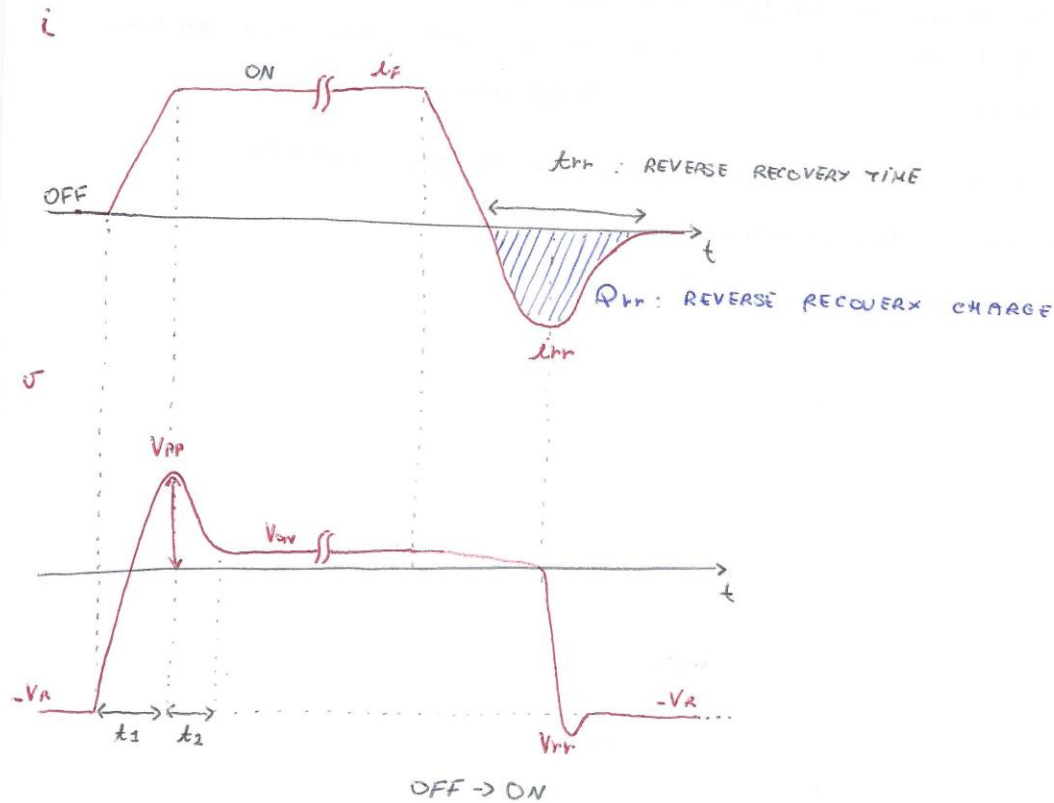 i
ON
iF
trr : REVERSE RECOVERY TIME
OFF
t
Qrr : REVERSE RECOVERY CHARGE
irr
v
VPP
VON
t
-VR
-VR
t1
t2
Vrr
OFF -> ON